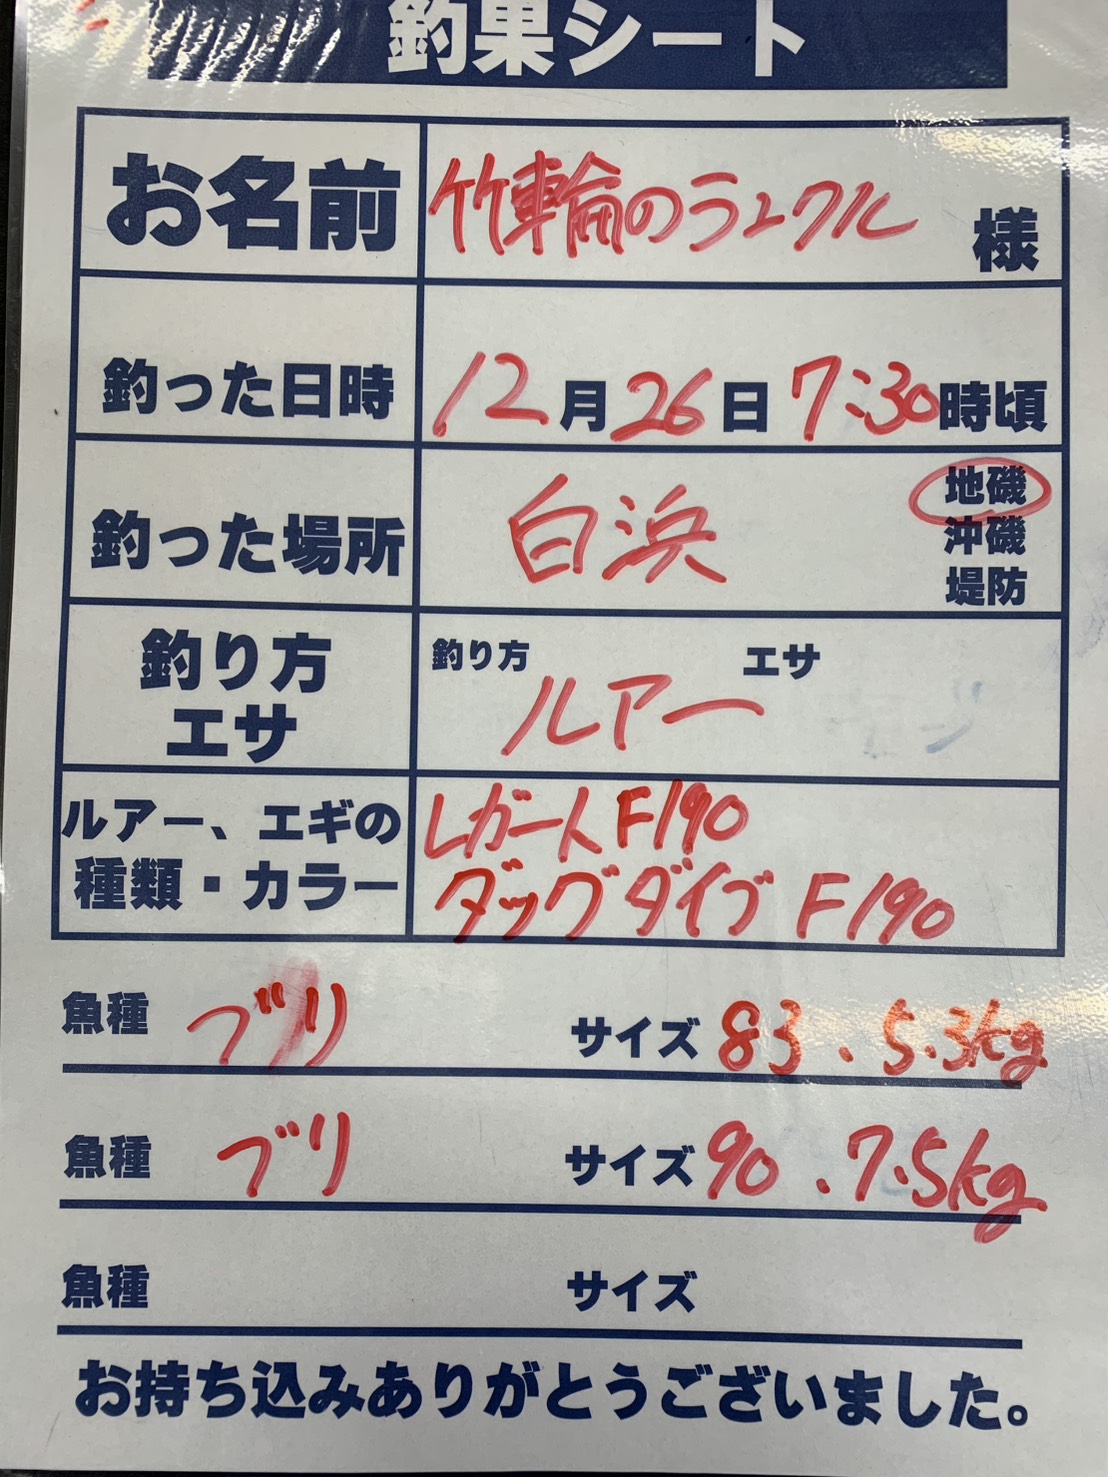 釣果シート
お名前 竹輪のランクル 様
釣った日時 12月26日 7:30時頃
釣った場所 白浜 地磯
沖磯
堤防
釣り方 エサ
釣り方 ルアー エサ
ルアー、エギの レガート F190
種類・カラー ダッグダイブ F190
魚種 ブリ サイズ 83 . 5.3kg
魚種 ブリ サイズ 90 . 7.5kg
魚種 サイズ
お持ち込みありがとうございました。